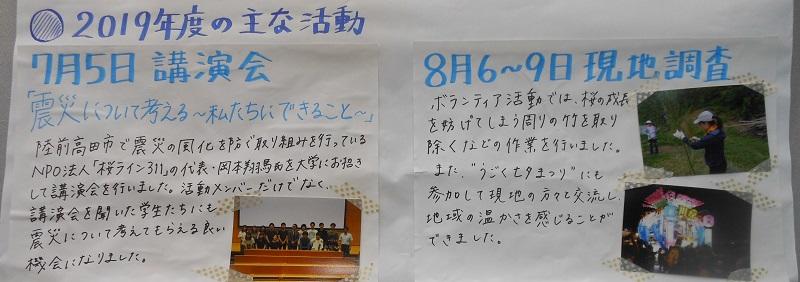 2019年度の主な活動
7月5日 講演会
「震災について考える～私たちにできること～」
陸前高田市で震災の風化を防ぐ取り組みを行っている
NPO法人「桜ライン311」の代表・岡本翔馬氏を大学にお招き
して講演会を行いました。活動メンバーだけでなく、
講演会を聞いた学生たちにも
震災について考えてもらえる良い
機会になりました。
8月6~9日 現地調査
ボランティア活動では、桜の成長
を妨げてしまう周りの竹を取り
除くなどの作業を行いました。
また、"うごく七夕まつり"にも
参加して現地の方々と交流し、
地域の温かさを感じることが
できました。